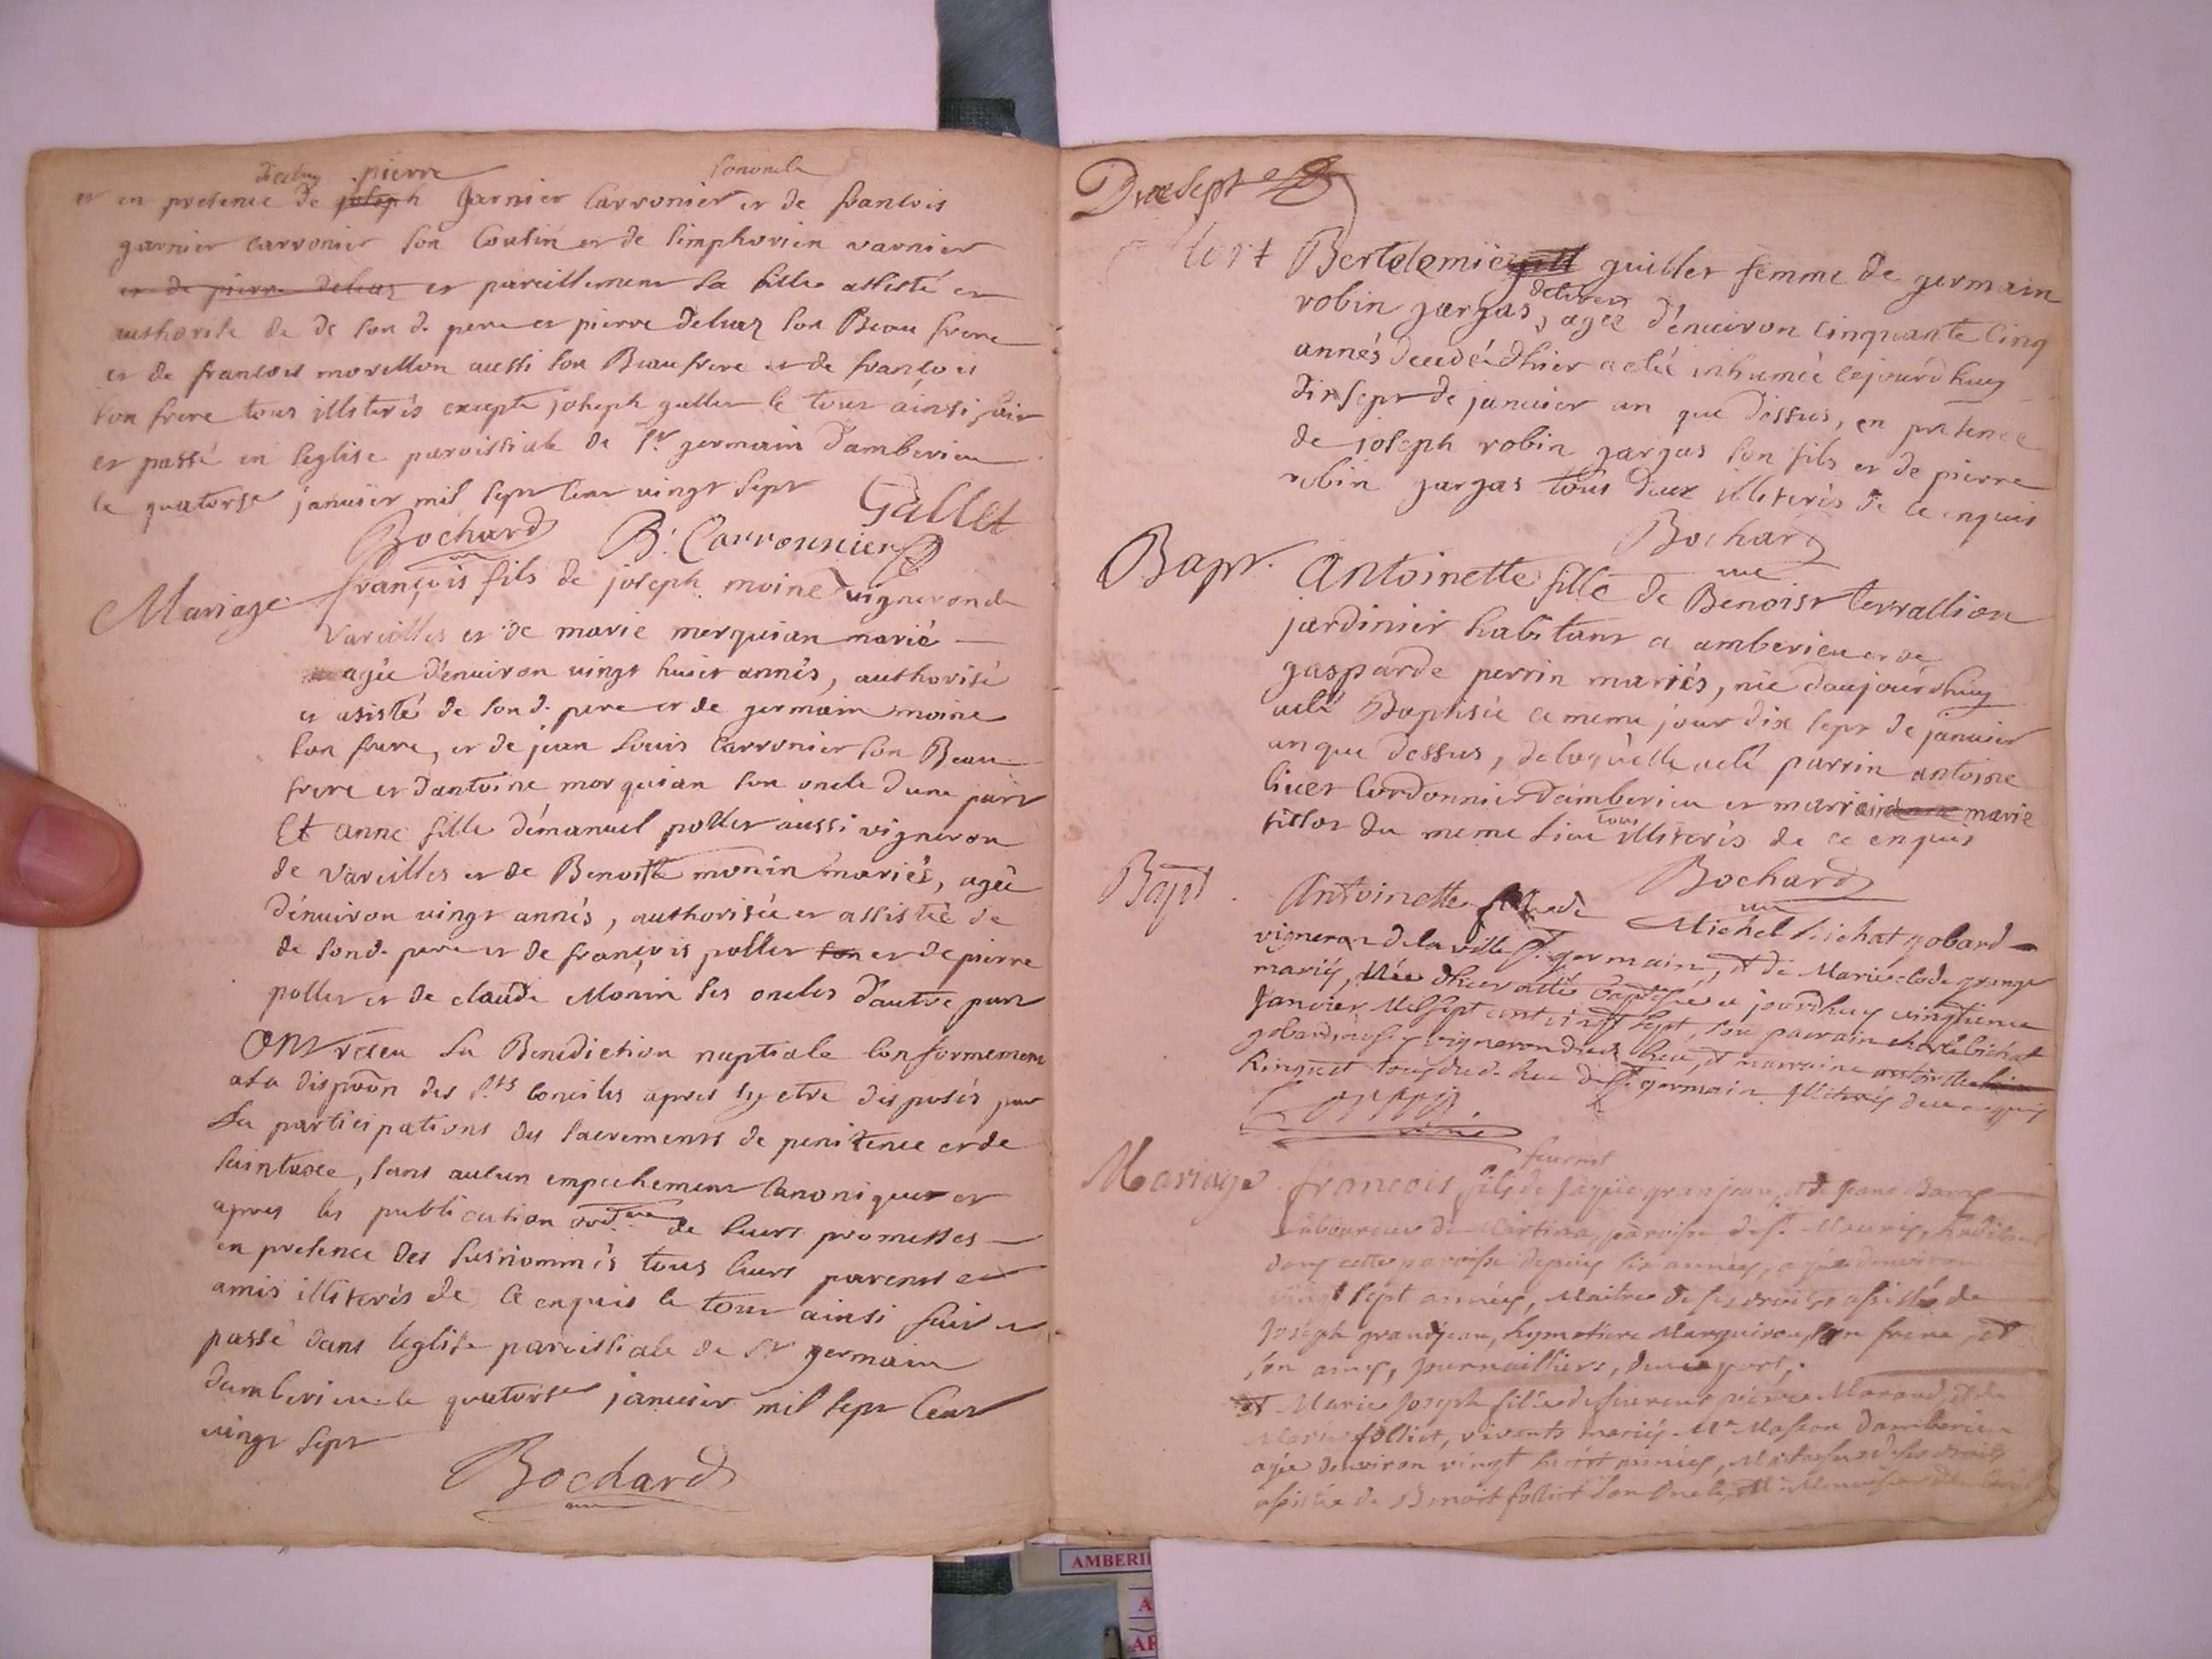 pierre son oncle
et en presence de joseph garnier Carronier et de francois
garnier carronier son Cousin et de simphorien varnier
et de pierre deluaz et pareillement la fille assisté et
authorisée de de son d. pere et pierre deluaz son Beau frere
et de francois morellon aussi son Beaufrere et de françois
son frere tous illiterés excepté joseph gallet le tout ainsi fait
et passé en leglise paroissiale de St germain d'amberieu
le quatorse januier mil sept cent vingt sept
Gallet
Bochard B. Carronnier
Mariage
françois fils de joseph moine vigneron de
Vareilles et de marie merquian mariés
agée d'enuiron vingt huict annés, authorisé
et asisté de son d. pere et de germain moine
son frere, et de jean Louis Carronier son Beau
frere et d'antoine morquian son oncle d'une part
Et anne fille d'émanuel pollet aussi vigneron
de Vareilles et de Benoitte monin mariés, agée
d'enuiron vingt annés, authorisée et assistée de
de son d. pere et de françois pollet et de pierre
pollet et de claude Monin ses oncles d'autre part
Ont receu la Benediction nuptiale Conformement
a la dispõon des Sts Conciles apres sy etre disposés par
La participations des sacrements de penitence et de
, sans aucun empechement Canonique et
apres les publication ord.re de leurs promesses
en presence des susnommés tous leurs parens et
amis illiterés de ce enquis le tout ainsi fait et
passé dans leglise paroissiale de St germain
damberieu le quatorse januier mil sept Cent
vingt sept
Bochard
Dixsept
Mort
Bertelemie guillet femme de germain
robin gargas, agée d'enuiron Cinquante Cinq
annés decedée d'hier a eté inhumée cejourd'huy
dixsept de januier an que dessus, en presence
de joseph robin gargas son fils et de pierre
robin gargas tous deux illiterés de ce enquis
Bochard
Bapt.
Antoinette fille de Benoist terrallion
jardinier habitant a amberieu et de
gasparde perrin mariés, née daujourdhuy
a eté Baptisée ce meme jour dix sept de januier
an que dessus, de laquelle a eté parrin antoine
liuet Cordonnier d'amberieu et marrine marie
tillot du meme lieu tous illiterés de ce enquis
Bochard
Bapt.
Antoinette fille de Michel bichat gobard
vigneron de la ville St germain, et de Marie
mariés, Née dhier a été Baptisée ce jourdhuy vingtieme
Janvier Mil sept cent vingt sept, son parrain bichat
gobard, vigneron dud. lieu, et marraine
Ringuet tous dud. lieu de St germain Illiterés de ce enquis
Mariage
francois fils de Jaque granjean, et de Jeane
Laboureur de Martina, paroisse de St. Mauris, habitant
dans cette paroisse depuis six années, agée denviron
vingt sept années, Maitre de ses droits assisté de
Joseph grandjean, son frere, et
son amy, journailliers, dune part,
et Marie Joseph fille de pierre Maraud, et de
Marie folliet, vivants mariés Me Masson d'amberieu
agée denviron vingt huict années, Maitresse de ses droits
assistée de Benoit folliet son oncle,